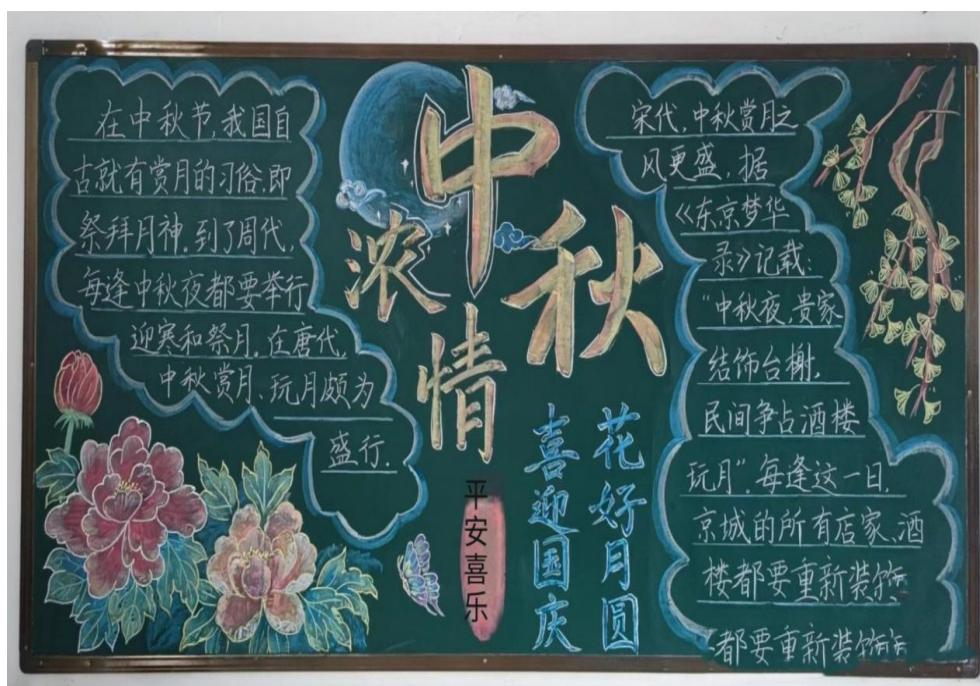 在中秋节,我国自
古就有赏月的习俗,即
祭拜月神.到了周代,
每逢中秋夜都要举行
迎寒和祭月.在唐代,
中秋赏月、玩月颇为
盛行.
中秋
浓情
平安喜乐
花好月圆
喜迎国庆
宋代,中秋赏月之
风更盛,据
《东京梦华
录》记载:
“中秋夜,贵家
结饰台榭,
民间争占酒楼
玩月”.每逢这一日,
京城的所有店家、酒
楼都要重新装饰
都要重新装饰